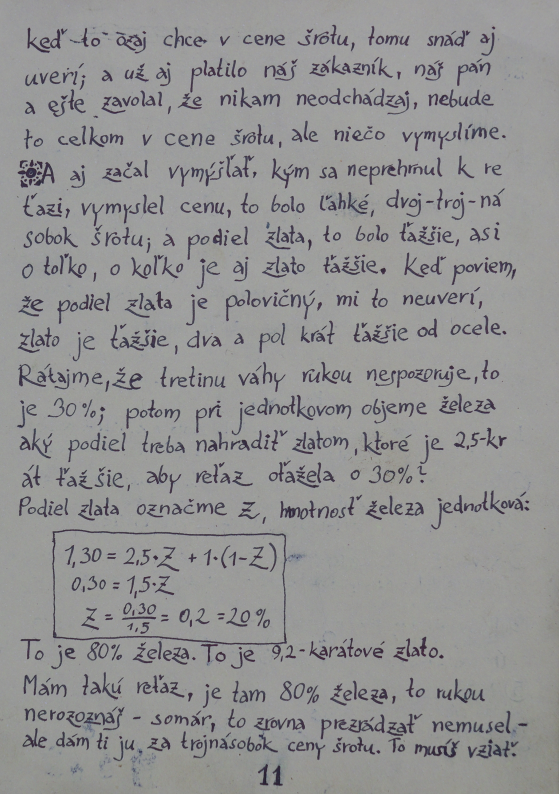 keď to ozaj chce v cene šrótu, tomu snáď aj
uverí; a už aj platilo náš zákazník, náš pán
a ešte zavolal, že nikam neodchádzaj, nebude
to celkom v cene šrotu, ale niečo vymyslíme.
A aj začal vymýšľať, kým sa neprehrnul k re
ťazi, vymyslel cenu, to bolo ľahké, dvoj-troj-ná
sobok šrotu; a podiel zlata, to bolo ťažšie, asi
o toľko, o koľko je aj zlato ťažšie. Keď poviem,
že podiel zlata je polovičný, mi to neuverí,
zlato je ťažšie, dva a pol krát ťažšie od ocele.
Rátajme, že tretinu váhy rukou nespozoruje, to
je 30%; potom pri jednotkovom objeme železa
aký podiel treba nahradiť zlatom, ktoré je 2,5-kr
át ťažšie, aby reťaz oťažela o 30%?
Podiel zlata označme Z, hmotnosť železa jednotková:
1,30 = 2,5·Z + 1·(1-Z)
0,30 = 1,5·Z
Z = 0,30/1,5 = 0,2 = 20%
To je 80% železa. To je 9,2-karátové zlato.
Mám takú reťaz, je tam 80% železa, to rukou
nerozoznáš - somár, to zrovna prezrádzať nemusel -
ale dám ti ju za trojnásobok ceny šrotu. To musíš vziať.
11